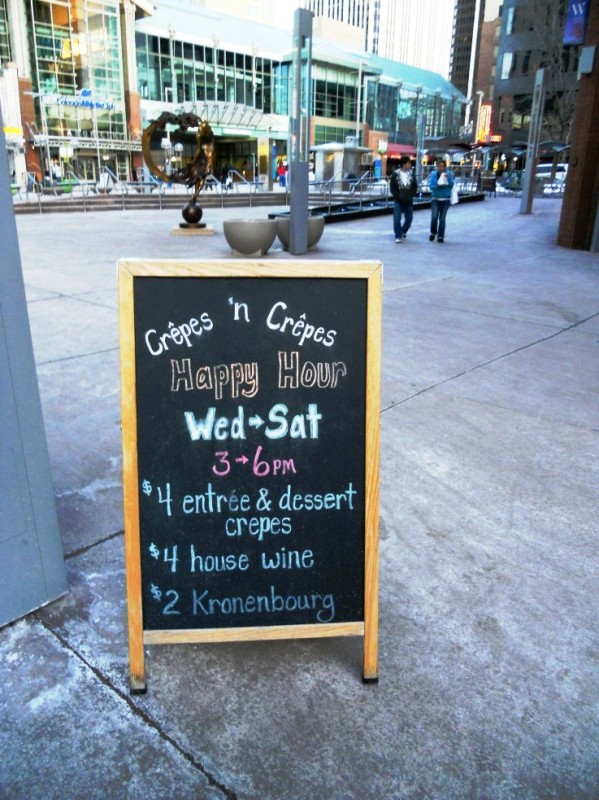 Crêpes 'n Crêpes
Happy Hour
Wed→Sat
3→6PM
$4 entrée & dessert
crepes
$4 house wine
$2 Kronenbourg
W